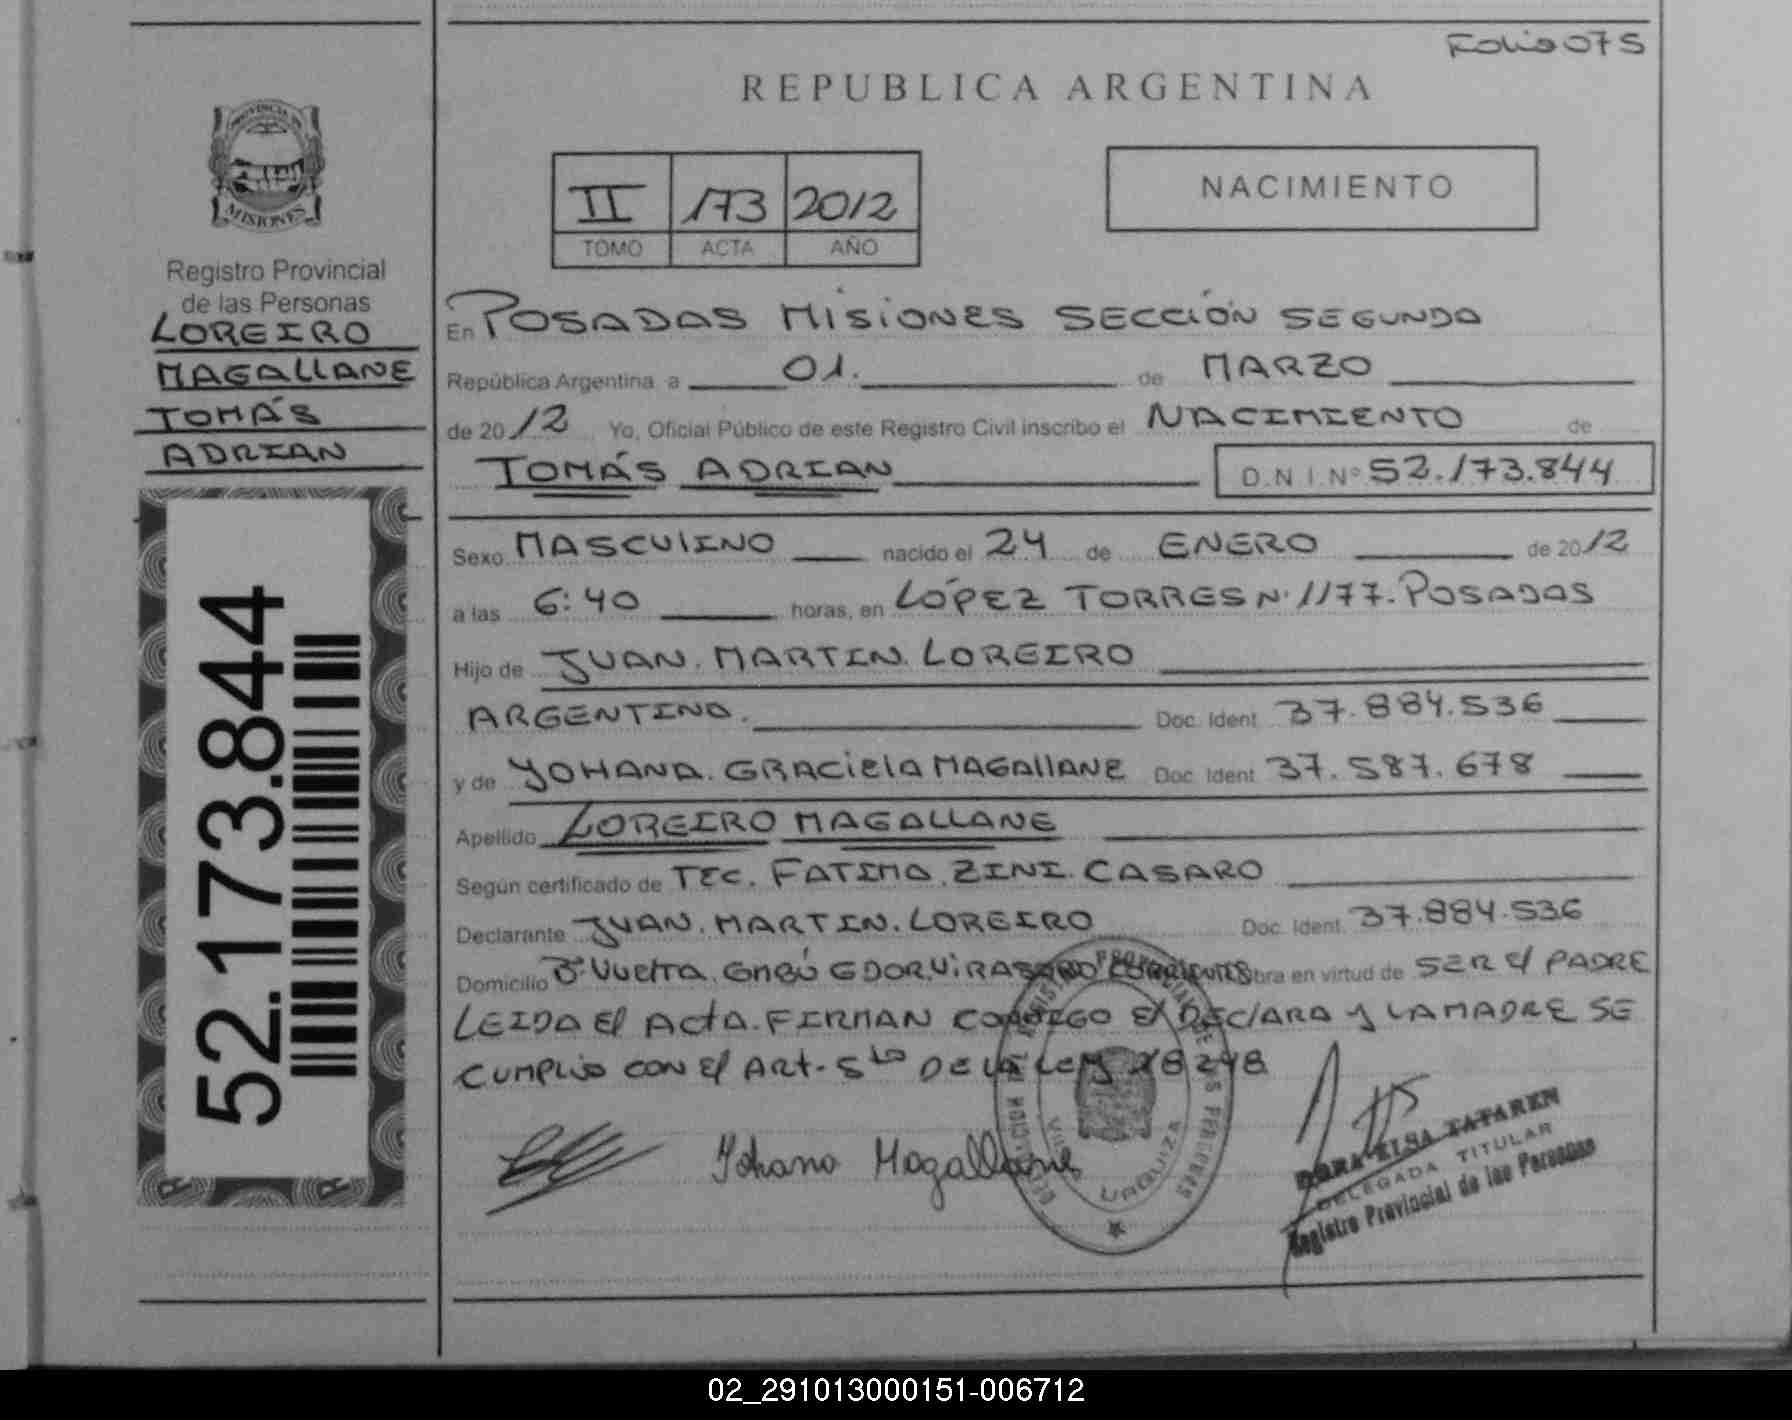 Folio 075
REPUBLICA ARGENTINA
PROVINCIA DE
MISIONES
Registro Provincial
de las Personas
LOREIRO
MAGALLANE
TOMÁS
ADRIAN
52.173.844
II 173 2012
TOMO ACTA AÑO
NACIMIENTO
En POSADAS MISIONES SECCIÓN SEGUNDA
República Argentina a 01. de MARZO
de 2012 Yo, Oficial Público de este Registro Civil inscribo el NACIMIENTO de
TOMÁS ADRIAN D.N.I.Nº 52.173.844
Sexo MASCULINO nacido el 24 de ENERO de 2012
a las 6:40 horas, en LÓPEZ TORRES N· 1177. POSADAS
Hijo de JUAN. MARTIN. LOREIRO
ARGENTINO. Doc. Ident. 37.884.536
y de YOHANA. GRACIELA MAGALLANE Doc. Ident. 37.587.678
Apellido LOREIRO MAGALLANE
Según certificado de TEC. FATIMA. ZINI. CASARO
Declarante JUAN. MARTIN. LOREIRO Doc. Ident. 37.884.536
Domicilio 3ª VUELTA. GDOR. VIRASORO CORRIENTES Obra en virtud de SER El PADRE
LEIDA El ACTA. FIRMAN CONMIGO El DECLARA y LA MADRE SE
CUMPLIO CON El ART. 5to DE LA LEY 18248
Yohana Magallane
REGISTRO PROVINCIAL DE LAS PERSONAS
VILLA URQUIZA
DORA ELSA TATAREN
DELEGADA TITULAR
Registro Provincial de las Personas
02_291013000151-006712